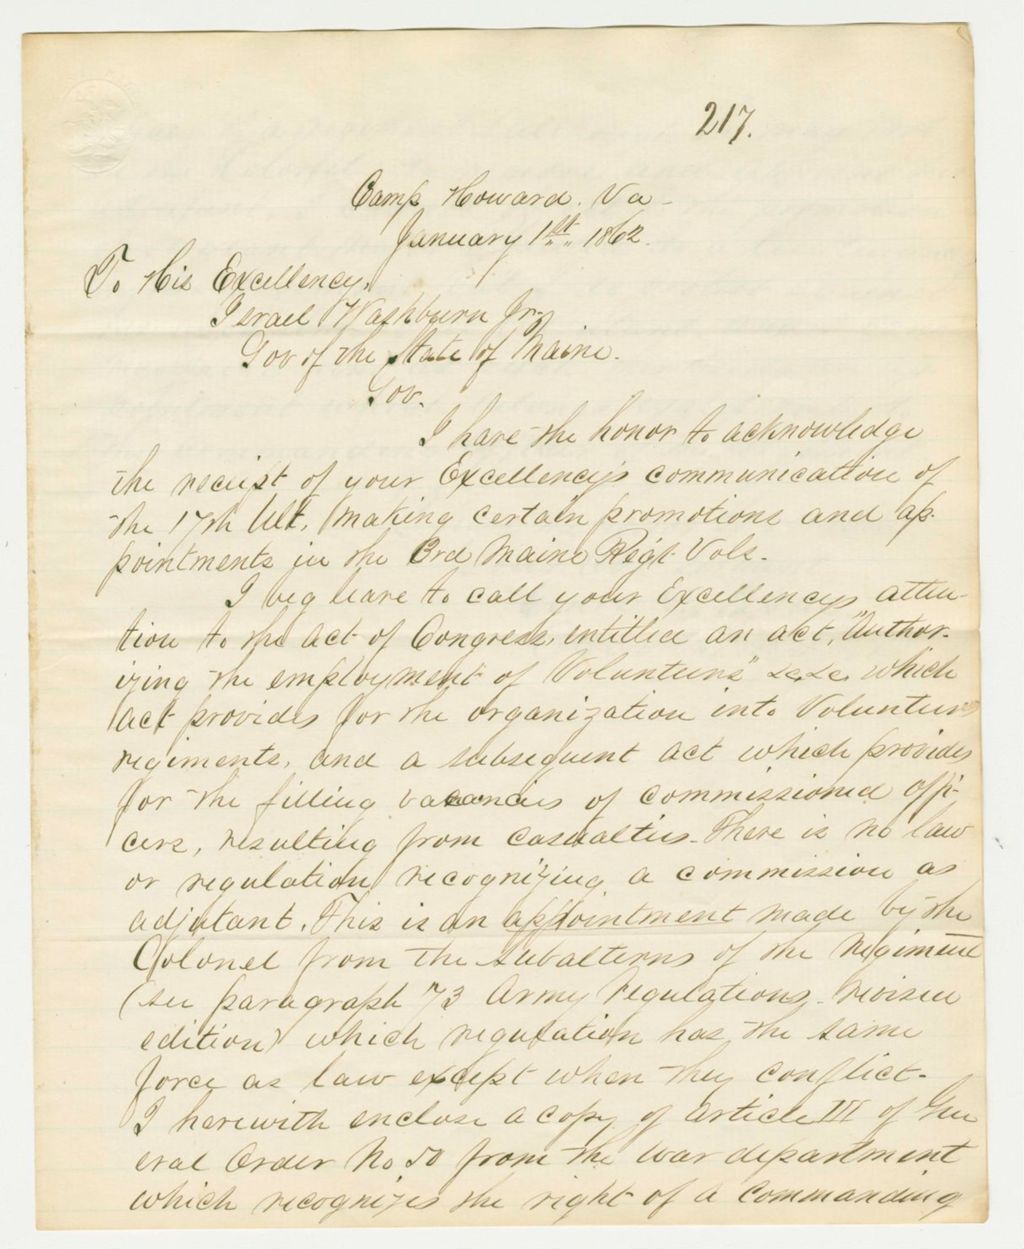 217.
Camp Howard. Va -
January 1st 1862.
To His Excellency,
Israel Washburn Jr.
Gov of the State of Maine.
Gov.
I have the honor to acknowledge
the receipt of your Excellency's communication of
the 17th Ult, making certain promotions and ap-
pointments in the 3rd Maine Regt. Vols.
I beg leave to call your Excellencys atten-
tion to the act of Congress, entitled an act, "Author-
izing the employment of Volunteers" &c, &c, which
act provides for the organization into Volunteer
regiments, and a subsequent act which provides
for the filling vacancies of commissioned offi-
cers, resulting from casualties. There is no law
or regulation recognizing a commission as
adjutant. This is an appointment made by the
Colonel from the subalterns of the Regiment
(see paragraph 73 Army Regulations, revised
edition) which regulation has the same
force as law except when they conflict.
I herewith enclose a copy of article III of Gen
eral Order No 50 from the war department
which recognizes the right of a commanding